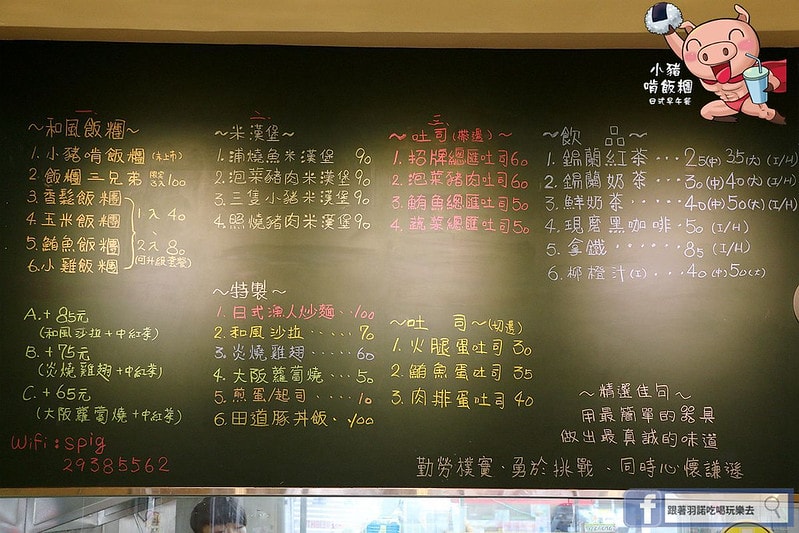 小豬
啃飯糰
日式早午餐
一
~和風飯糰~
1. 小豬啃飯糰 (未上市)
2. 飯糰三兄弟 100
3. 香鬆飯糰
4. 玉米飯糰
5. 鮪魚飯糰
6. 小雞飯糰
1入 40
2入 80
(可升級套餐)
A. + 85元
(和風沙拉 + 中紅茶)
B. + 75元
(炎燒雞翅 + 中紅茶)
C. + 65元
(大阪蘿蔔燒 + 中紅茶)
Wifi : spig
29385562
二
~米漢堡~
1. 浦燒魚米漢堡 90
2. 泡菜豬肉米漢堡 90
3. 三隻小豬米漢堡 90
4. 照燒豬肉米漢堡 90
~特製~
1. 日式漁人炒麵 100
2. 和風沙拉 70
3. 炎燒雞翅 60
4. 大阪蘿蔔燒 50
5. 煎蛋/起司 10
6. 田道豚丼飯 100
三
~吐司(帶邊)~
1. 招牌總匯吐司 60
2. 泡菜豬肉吐司 60
3. 鮪魚總匯吐司 50
4. 蔬菜總匯吐司 50
~吐司~(切邊)
1. 火腿蛋吐司 30
2. 鮪魚蛋吐司 35
3. 肉排蛋吐司 40
~飲品~
1. 錫蘭紅茶...25(中)35(大)(I/H)
2. 錫蘭奶茶...30(中)40(大)(I/H)
3. 鮮奶茶...40(中)50(大)(I/H)
4. 現磨黑咖啡.50(I/H)
5. 拿鐵......85(I/H)
6. 柳橙汁(I)...40(中)50(大)
~精選佳句~
用最簡單的器具
做出最真誠的味道
勤勞樸實、勇於挑戰、同時心懷謙遜
跟著羽諾吃喝玩樂去